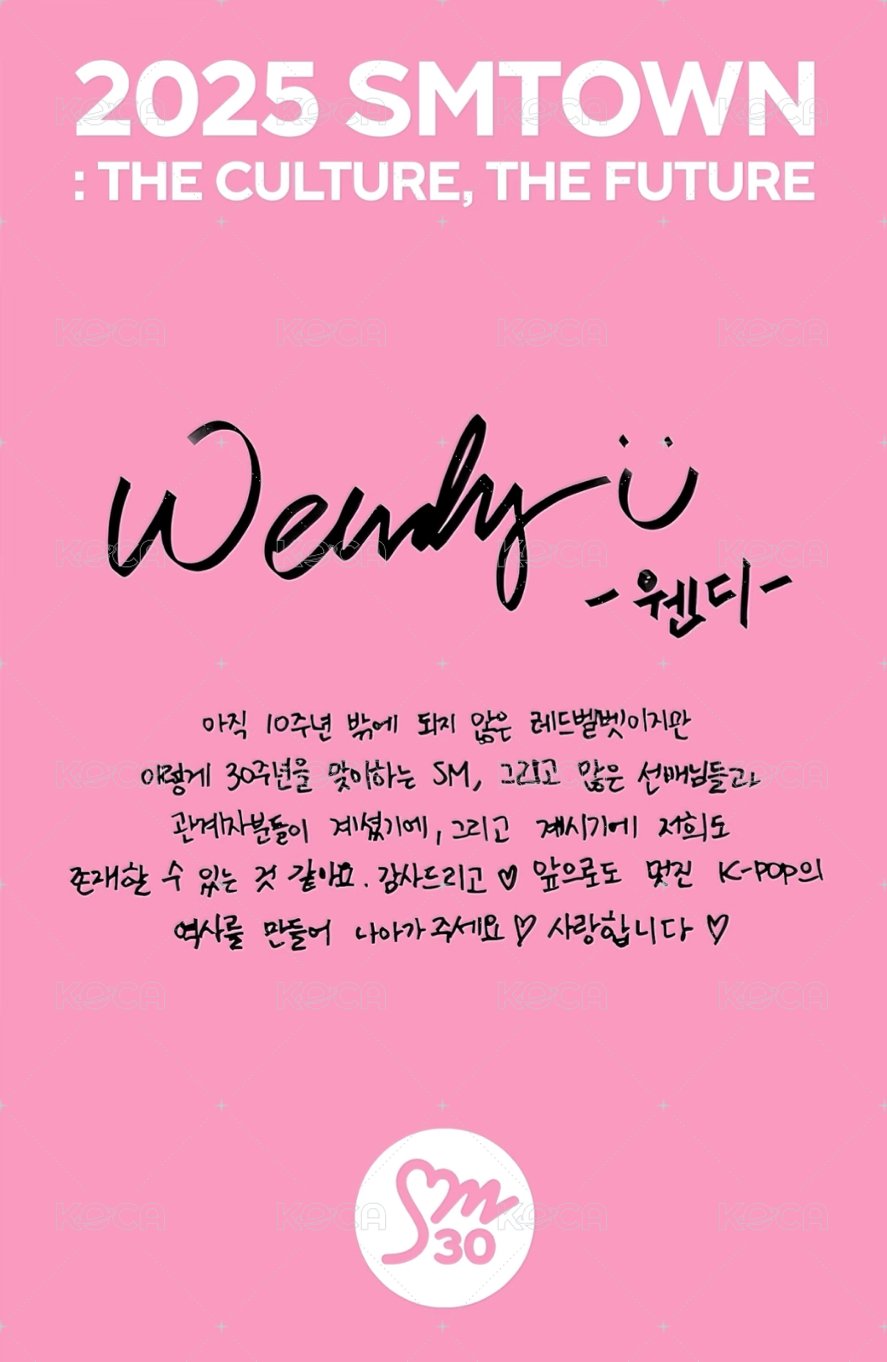 2025 SMTOWN
: THE CULTURE, THE FUTURE
Wendy
-웬디-
아직 10주년 밖에 되지 않은 레드벨벳이지만
이렇게 30주년을 맞이하는 SM, 그리고 많은 선배님들과
관계자분들이 계셨기에, 그리고 계시기에 저희도
존재할 수 있는 것 같아요. 감사드리고 ♡ 앞으로도 멋진 K-POP의
역사를 만들어 나아가주세요 ♡ 사랑합니다 ♡
Sm
30
KOCA